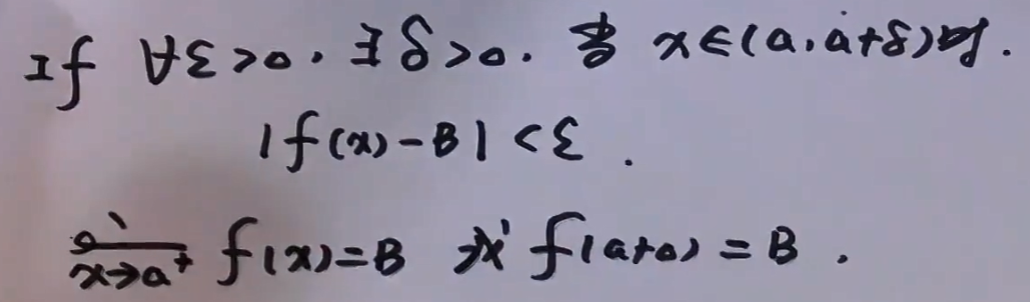 If ∀ε>0, ∃δ>0, 当 x∈(a,a+δ)时.
|f(x)-B|<ε.
x→a⁺ f(x)=B 或 f(a+0)=B.